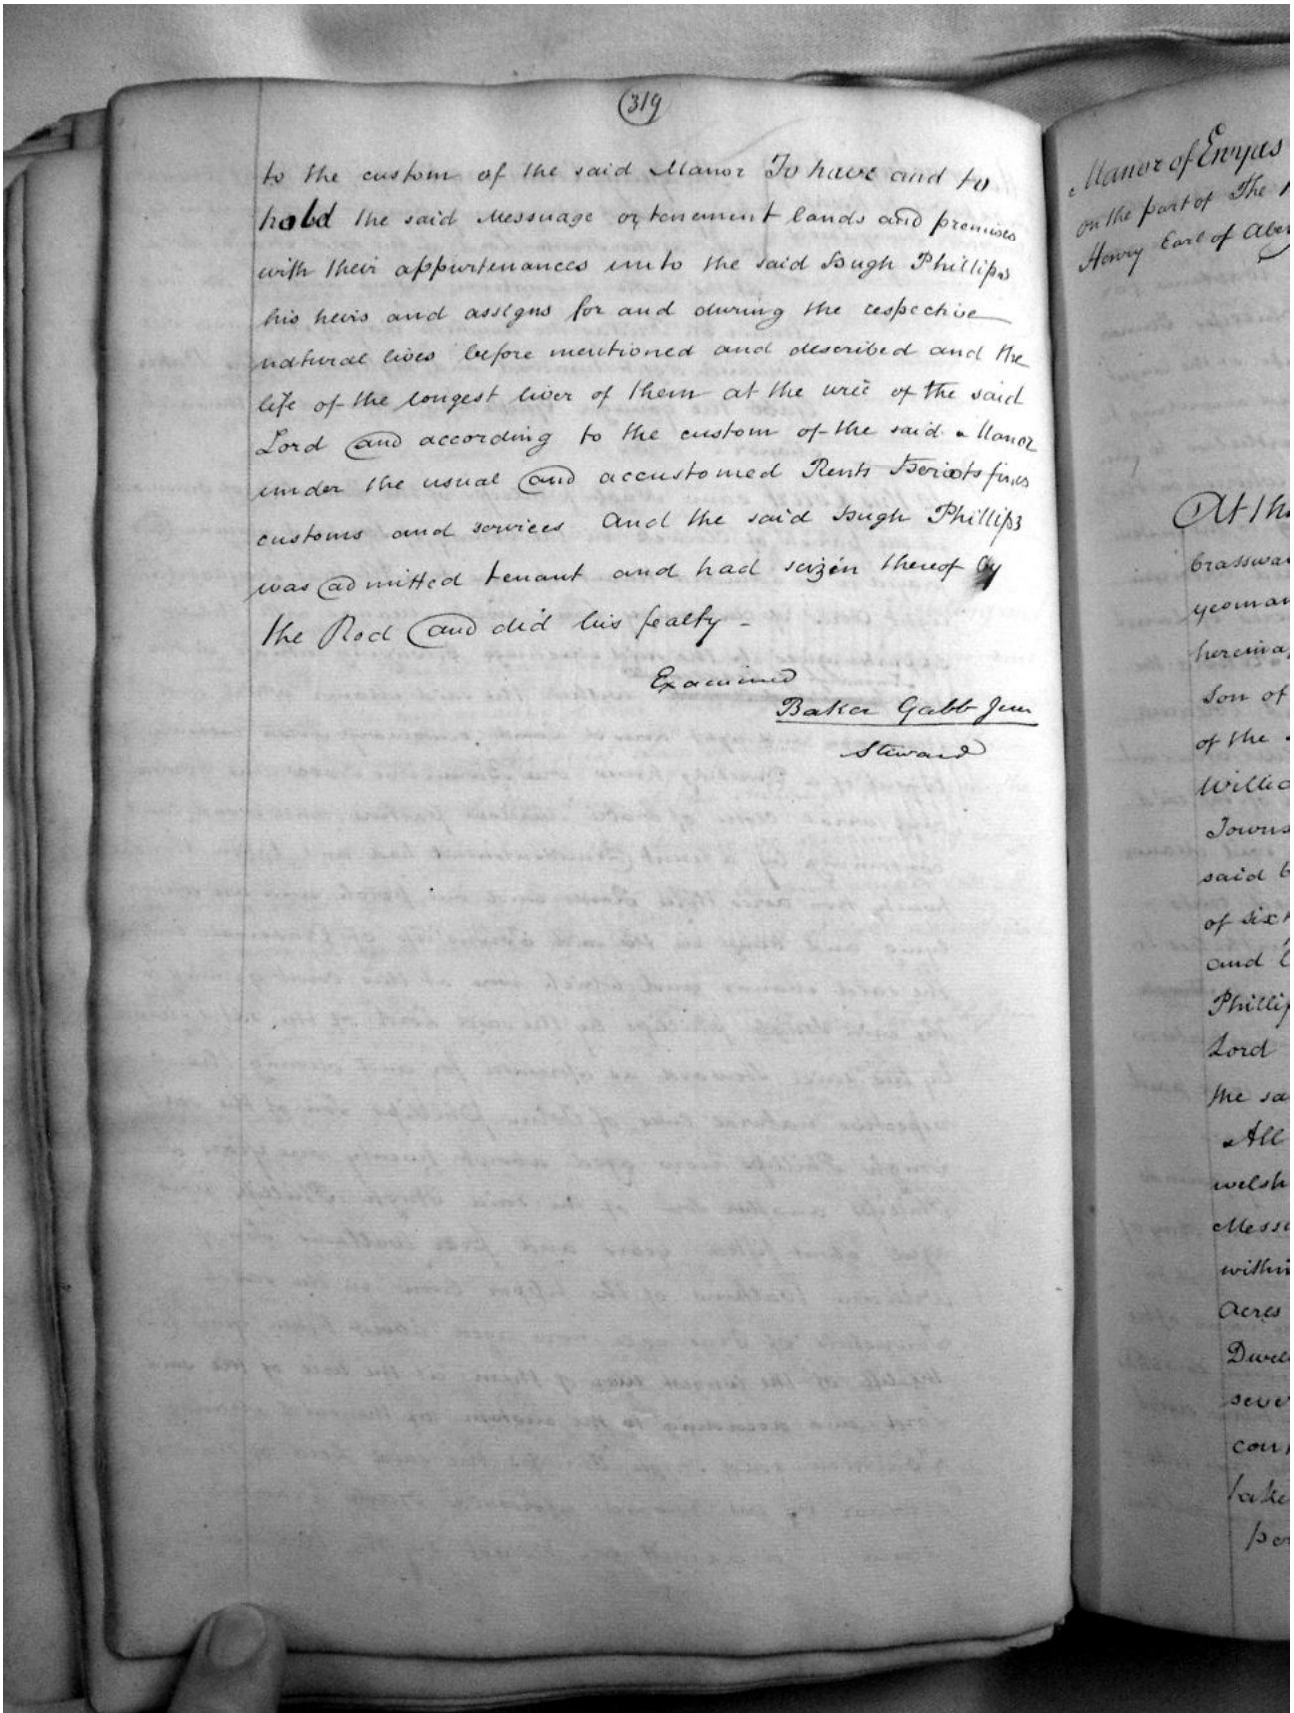 319
to the custom of the said Manor To have and to
hold the said Messuage or tenement lands and premises
with their appurtenances unto the said Hugh Phillips
his heirs and assigns for and during the respective
natural lives before mentioned and described and the
life of the longest liver of them at the will of the said
Lord and according to the custom of the said Manor
under the usual and accustomed Rents Heriots fines
customs and services And the said Hugh Phillips
was admitted tenant and had seizin thereof by
the Rod and did his fealty -
Examined
Baker Gabb Junr
Steward
Manor of Ewyas
on the part of The
Henry Earl of Aber
At th
Crasswa
yeoman
hereina
Son of
of the
Willia
Towns
said
of sixt
and
Phillip
Lord
the sa
All
welsh
Messu
within
Acres
Dwell
sever
con
take
per